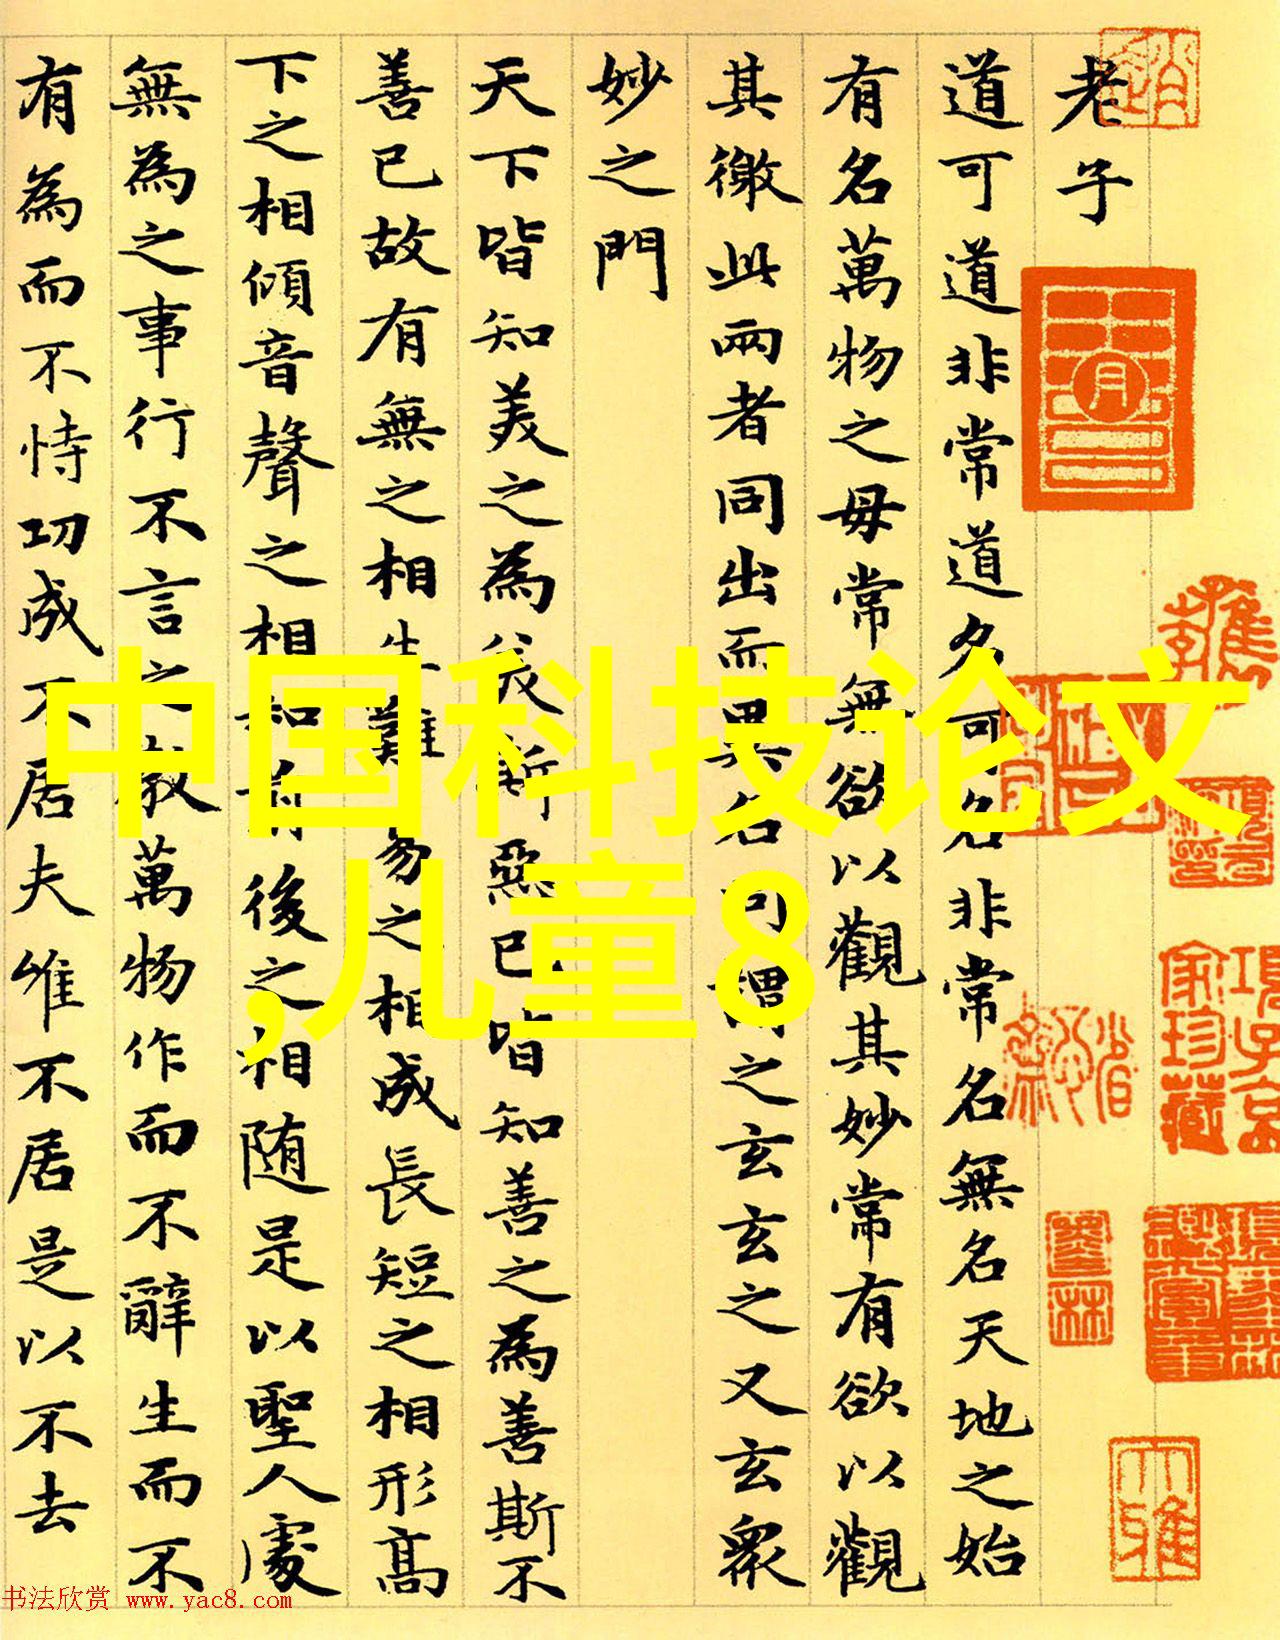 老子
道可道非常道名可名非常名無名天地之始
有名萬物之母常無欲以觀其妙常有欲以觀
其徼此兩者同出而異名同謂之玄玄之又玄衆
妙之門
天下皆知美之為美斯惡已皆知善之為善斯不
善已故有無之相生難易之相成長短之相形高
下之相傾音聲之相和前後之相随是以聖人處
無為之事行不言之教萬物作而不辭生而不
有為而不恃功成不居夫唯不居是以不去
中国科技论文
,儿童8
項子京
家珍藏
书法欣赏 www.yac8.com